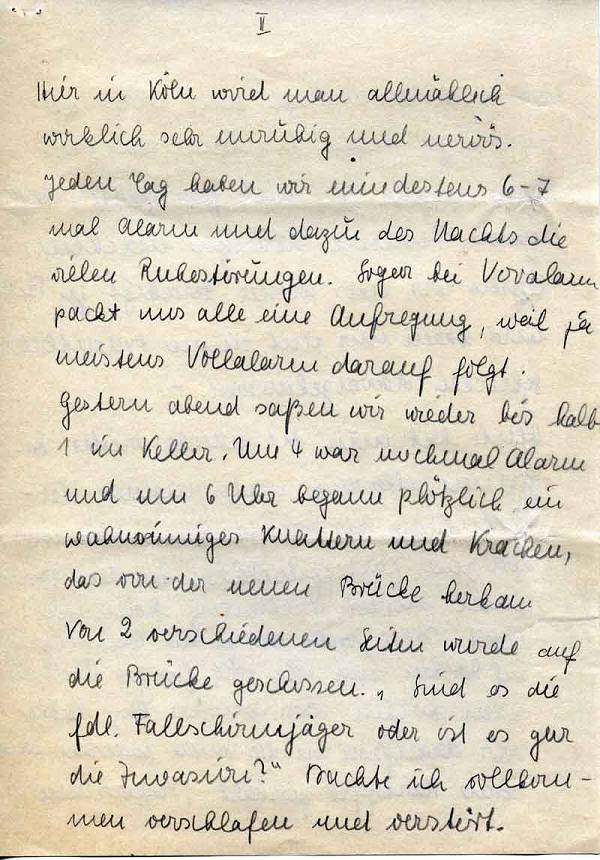 II
Hier in Köln wird man allmählich
wirklich sehr unruhig und nervös.
Jeden Tag haben wir mindestens 6-7
mal Alarm und dazu des Nachts die
vielen Ruhestörungen. Sogar bei Voralarm
packt uns alle eine Aufregung, weil ja
meistens Vollalarm darauf folgt.
Gestern abend saßen wir wieder bis halb
1 im Keller. Um 4 war nochmal Alarm
und um 6 Uhr begann plötzlich ein
wahnsinniges Knattern und Krachen,
das von der neuen Brücke herkam
Von 2 verschiedenen Seiten wurde auf
die Brücke geschossen. „Sind es die
fdl. Fallschirmjäger oder ist es gar
die Invasion?" Dachte ich vollkom-
men verschlafen und verstört.